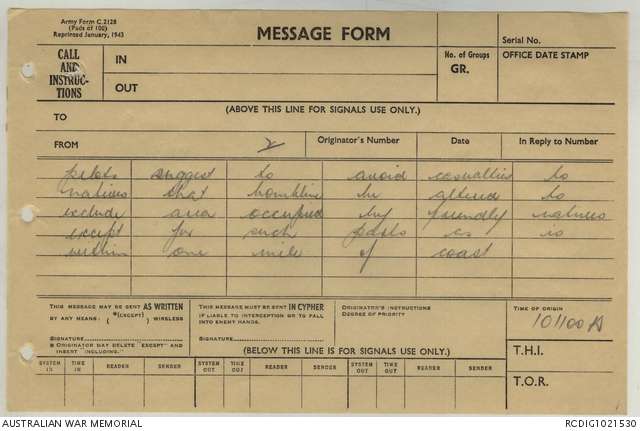 Army Form C.2128
(Pads of 100)
Reprinted January, 1943
MESSAGE FORM
Serial No.
CALL AND INSTRUC-TIONS
IN
OUT
No. of Groups
GR.
OFFICE DATE STAMP
(ABOVE THIS LINE FOR SIGNALS USE ONLY.)
TO
FROM
2
Originator's Number
Date
In Reply to Number
pilots suggest to avoid casualties to
natives that bombline be altered to
exclude area occupied by friendly natives
except for such parts as is
within one mile of coast
THIS MESSAGE MAY BE SENT AS WRITTEN
BY ANY MEANS. *(EXCEPT) WIRELESS
Signature
* ORIGINATOR MAY DELETE "EXCEPT" AND
INSERT "INCLUDING."
THIS MESSAGE MUST BE SENT IN CYPHER
IF LIABLE TO INTERCEPTION OR TO FALL
INTO ENEMY HANDS.
SIGNATURE
ORIGINATOR'S INSTRUCTIONS
DEGREE OF PRIORITY
TIME OF ORIGIN
(BELOW THIS LINE IS FOR SIGNALS USE ONLY.)
T.H.I.
T.O.R.
SYSTEM IN
TIME IN
READER
SENDER
SYSTEM OUT
TIME OUT
READER
SENDER
SYSTEM OUT
TIME OUT
READER
SENDER
AUSTRALIAN WAR MEMORIAL
RCDIG1021530